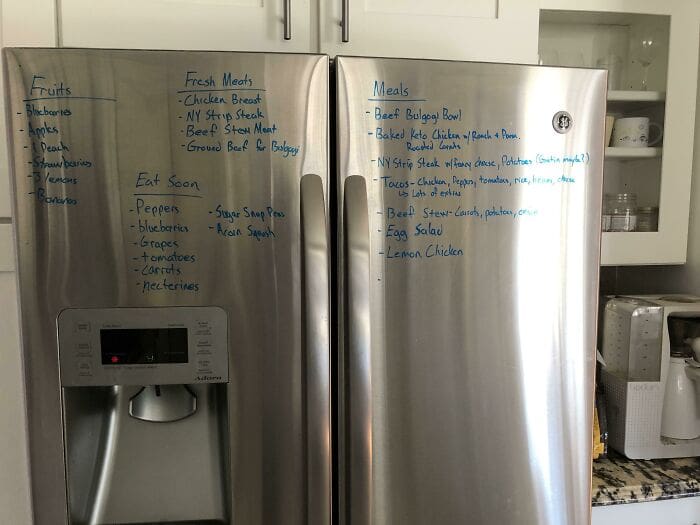 Fruits
- Blueberries
- Apples
- 1 Peach
- Strawberries
- 3 lemons
- Bananas
Fresh Meats
- Chicken Breast
- NY Strip Steak
- Beef Stew Meat
- Ground Beef for Bulgogi
Eat Soon
- Peppers
- blueberries
- Grapes
- tomatoes
- carrots
- necterines
- Sugar Snap Peas
- Acorn Squash
Meals
- Beef Bulgogi Bowl
- Baked Keto Chicken w/Ranch & Parm.
Roasted Carrots
- NY Strip Steak w/fancy cheese, Potatoes (Gratin maybe?)
- Tacos - Chicken, Peppers, tomatoes, rice, beans, cheese
Lots of extras
- Beef Stew - Carrots, potatoes,
- Egg Salad
- Lemon Chicken
-
GE
Adora